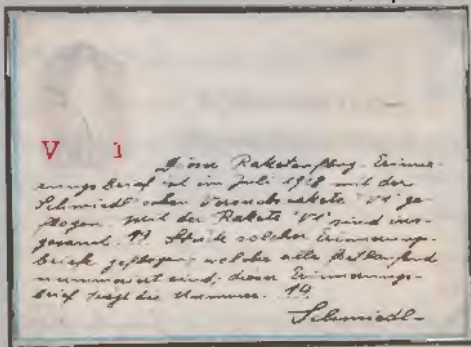 V 1
Dieser Raketenflug-Erinner-
ungsbrief ist im Juli 1928 mit der
Schmiedl'schen Versuchsrakete "V1" ge-
flogen. Mit der Rakete "V1" sind ins-
gesamt Stück solcher Erinnerungs-
briefe geflogen, welche alle fortlaufend
nummeriert sind; dieser Erinnerungs-
brief trägt die Nummer: 14
Schmiedl